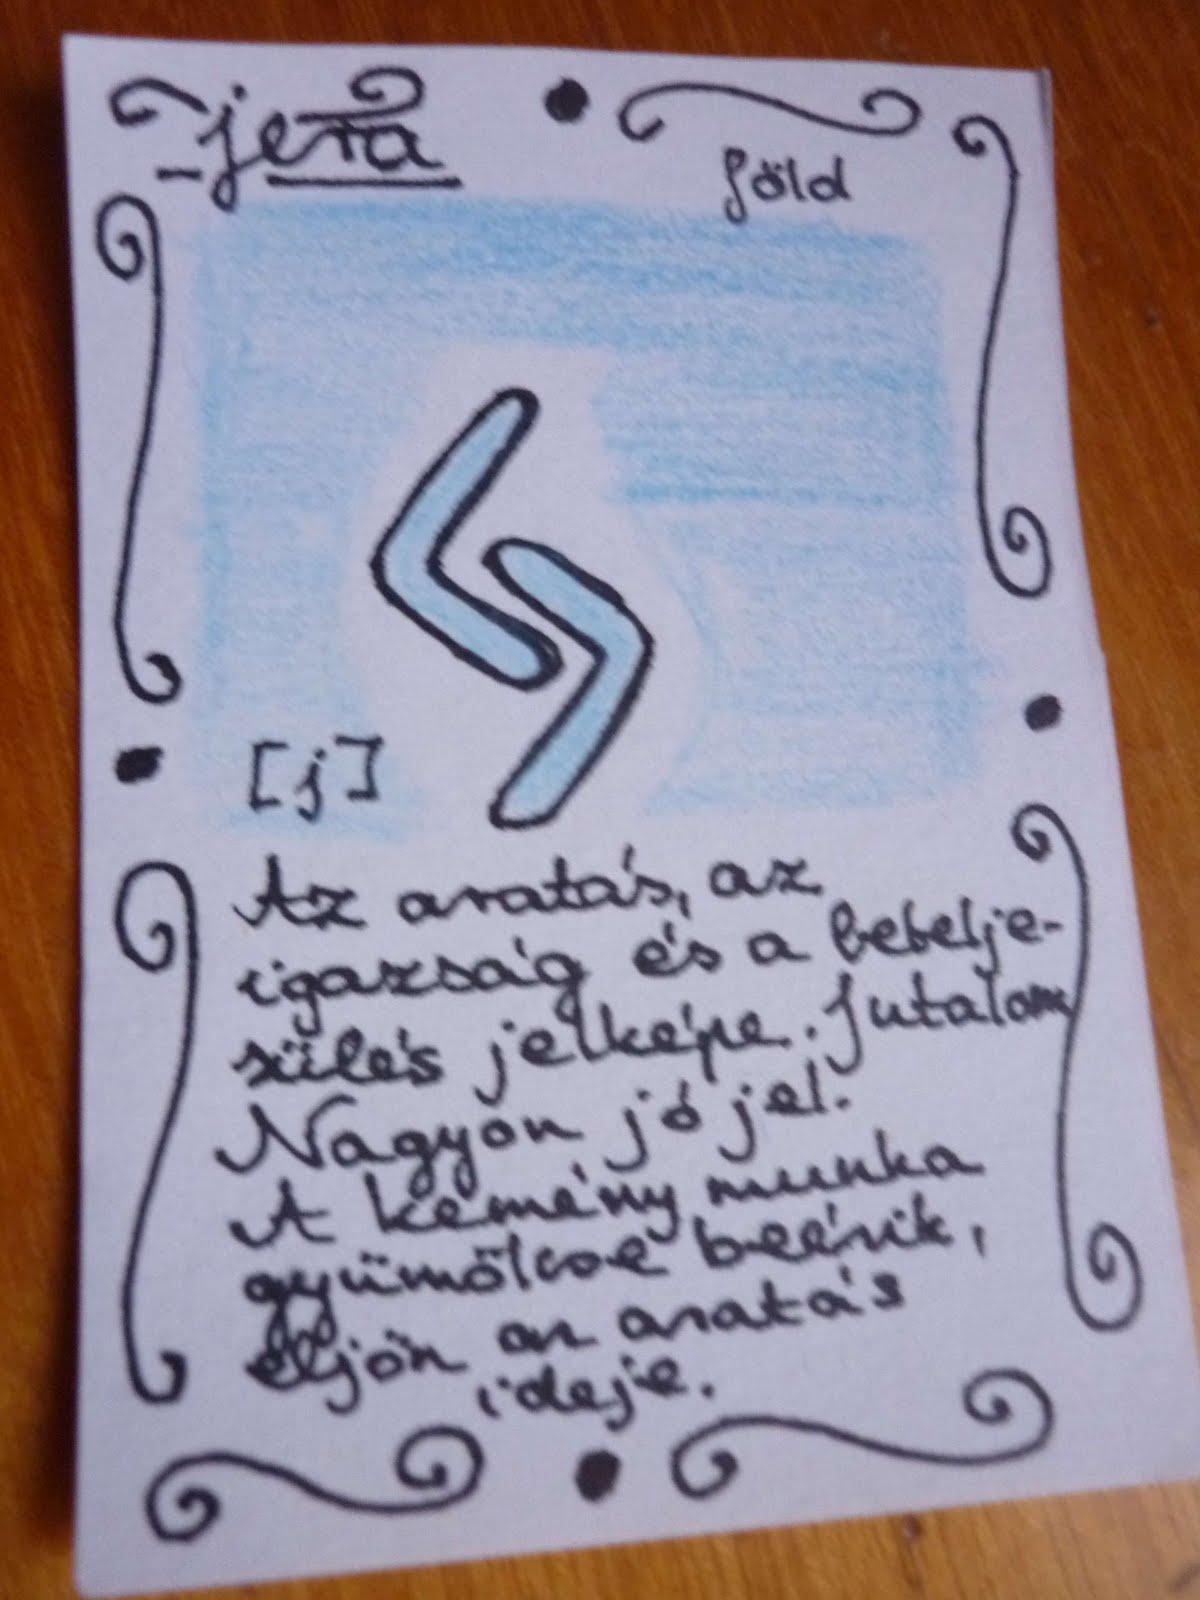 jera
föld
[j]
Az aratás, az
igazság és a betelje-
sülés jelképe. Jutalom
Nagyon jó jel.
A kemény munka
gyümölcse beérik,
eljön az aratás
ideje.